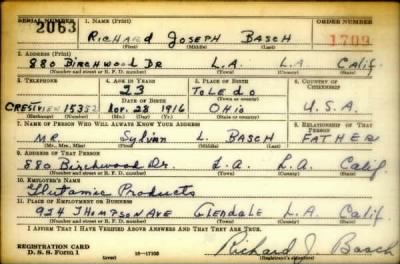 SERIAL NUMBER 1. NAME (Print) ORDER NUMBER
2063 RICHARD JOSEPH BASCH 1709
(First) (Middle) (Last)
2. ADDRESS (Print)
880 BIRCHWOOD DR L.A. L.A. CALIF.
(Number and street or R. F. D. number) (Town) (County) (State)
3. TELEPHONE 4. AGE IN YEARS 5. PLACE OF BIRTH 6. COUNTRY OF CITIZENSHIP
23 TOLEDO
DATE OF BIRTH (Town or county)
CRESTVIEW 15352 Nov. 28 1916 OHIO U.S.A.
(Exchange) (Number) (Mo.) (Day) (Yr.) (State or country)
7. NAME OF PERSON WHO WILL ALWAYS KNOW YOUR ADDRESS 8. RELATIONSHIP OF THAT PERSON
MR. Sylvan L. BASCH FATHER
(Mr., Mrs., Miss) (First) (Middle) (Last)
9. ADDRESS OF THAT PERSON
880 Birchwood Dr. L.A. L.A. Calif
(Number and street or R. F. D. number) (Town) (County) (State)
10. EMPLOYER'S NAME
Glutamic Products
11. PLACE OF EMPLOYMENT OR BUSINESS
924 THOMPSON AVE GLENDALE L.A. Calif.
(Number and street or R. F. D. number) (Town) (County) (State)
I AFFIRM THAT I HAVE VERIFIED ABOVE ANSWERS AND THAT THEY ARE TRUE.
REGISTRATION CARD Richard J. Basch
D. S. S. Form 1 (over) 16—17105 (Registrant's signature)